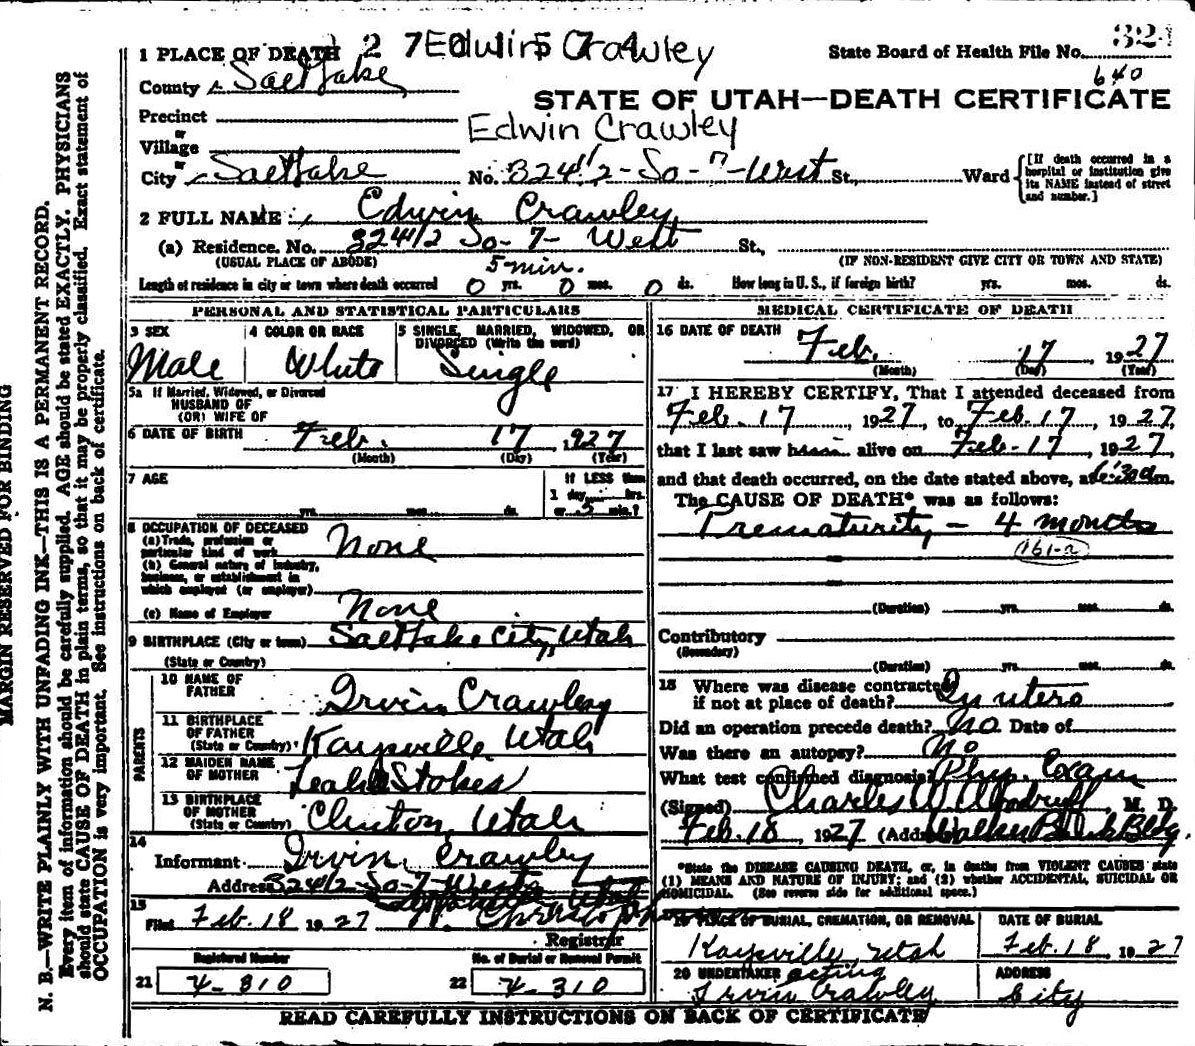 1 PLACE OF DEATH Edwin Crawley
State Board of Health File No. 324
County Salt Lake
640
STATE OF UTAH—DEATH CERTIFICATE
Precinct
Edwin Crawley
or
Village
or
City Salt Lake No. 324 1/2 - So - 7 - West St., Ward
[If death occurred in a hospital or institution give its NAME instead of street and number.]
2 FULL NAME Edwin Crawley
(a) Residence. No. 324 1/2 So - 7 - West St.,
(USUAL PLACE OF ABODE) (IF NON-RESIDENT GIVE CITY OR TOWN AND STATE)
5 min.
Length of residence in city or town where death occurred 0 yrs. 0 mos. 0 ds. How long in U. S., if foreign birth? yrs. mos. ds.
PERSONAL AND STATISTICAL PARTICULARS
3 SEX Male
4 COLOR OR RACE White
5 SINGLE, MARRIED, WIDOWED, OR DIVORCED (Write the word) Single
5a If Married, Widowed, or Divorced
HUSBAND OF
(OR) WIFE OF
6 DATE OF BIRTH Feb. 17, 1927
(Month) (Day) (Year)
7 AGE
yrs. mos. ds.
If LESS than
1 day, hrs.
or 5 min.?
8 OCCUPATION OF DECEASED
(a) Trade, profession or
particular kind of work None
(b) General nature of industry,
business, or establishment in
which employed (or employer)
(c) Name of Employer None
9 BIRTHPLACE (City or town) Salt Lake City, Utah
(State or Country)
PARENTS
10 NAME OF
FATHER Irvin Crawley
11 BIRTHPLACE
OF FATHER
(State or Country) Kaysville, Utah
12 MAIDEN NAME
OF MOTHER Leah Stokes
13 BIRTHPLACE
OF MOTHER
(State or Country) Clinton, Utah
14
Informant Irvin Crawley
Address 324 1/2 - So - 7 - West
15
Filed Feb. 18 1927
Registrar
Registered Number
21 4-310
No. of Burial or Removal Permit
22 4-310
MEDICAL CERTIFICATE OF DEATH
16 DATE OF DEATH
Feb. 17, 1927
(Month) (Day) (Year)
17 I HEREBY CERTIFY, That I attended deceased from
Feb. 17, 1927, to Feb. 17, 1927,
that I last saw him alive on Feb. 17, 1927,
and that death occurred, on the date stated above, at 6:30 am.
The CAUSE OF DEATH* was as follows:
Prematurity - 4 months
161-2
(Duration) yrs. mos. ds.
Contributory
(Secondary)
(Duration) yrs. mos. ds.
18 Where was disease contracted
if not at place of death? In utero
Did an operation precede death? No Date of
Was there an autopsy? No
What test confirmed diagnosis? Phys. Exam
(Signed) Charles W Woodruff, M. D.
Feb. 18, 1927 (Address) Walker Bank Bldg.
*State the DISEASE CAUSING DEATH, or, in deaths from VIOLENT CAUSES state
(1) MEANS AND NATURE OF INJURY; and (2) whether ACCIDENTAL, SUICIDAL OR
HOMICIDAL. (See reverse side for additional space.)
19 PLACE OF BURIAL, CREMATION, OR REMOVAL
Kaysville, Utah
DATE OF BURIAL
Feb. 18 1927
20 UNDERTAKER acting
Irvin Crawley
ADDRESS
City
READ CAREFULLY INSTRUCTIONS ON BACK OF CERTIFICATE
MARGIN RESERVED FOR BINDING
N. B.—WRITE PLAINLY WITH UNFADING INK—THIS IS A PERMANENT RECORD.
Every item of information should be carefully supplied. AGE should be stated EXACTLY. PHYSICIANS
should state CAUSE OF DEATH in plain terms, so that it may be properly classified. Exact statement of
OCCUPATION is very important. See instructions on back of certificate.